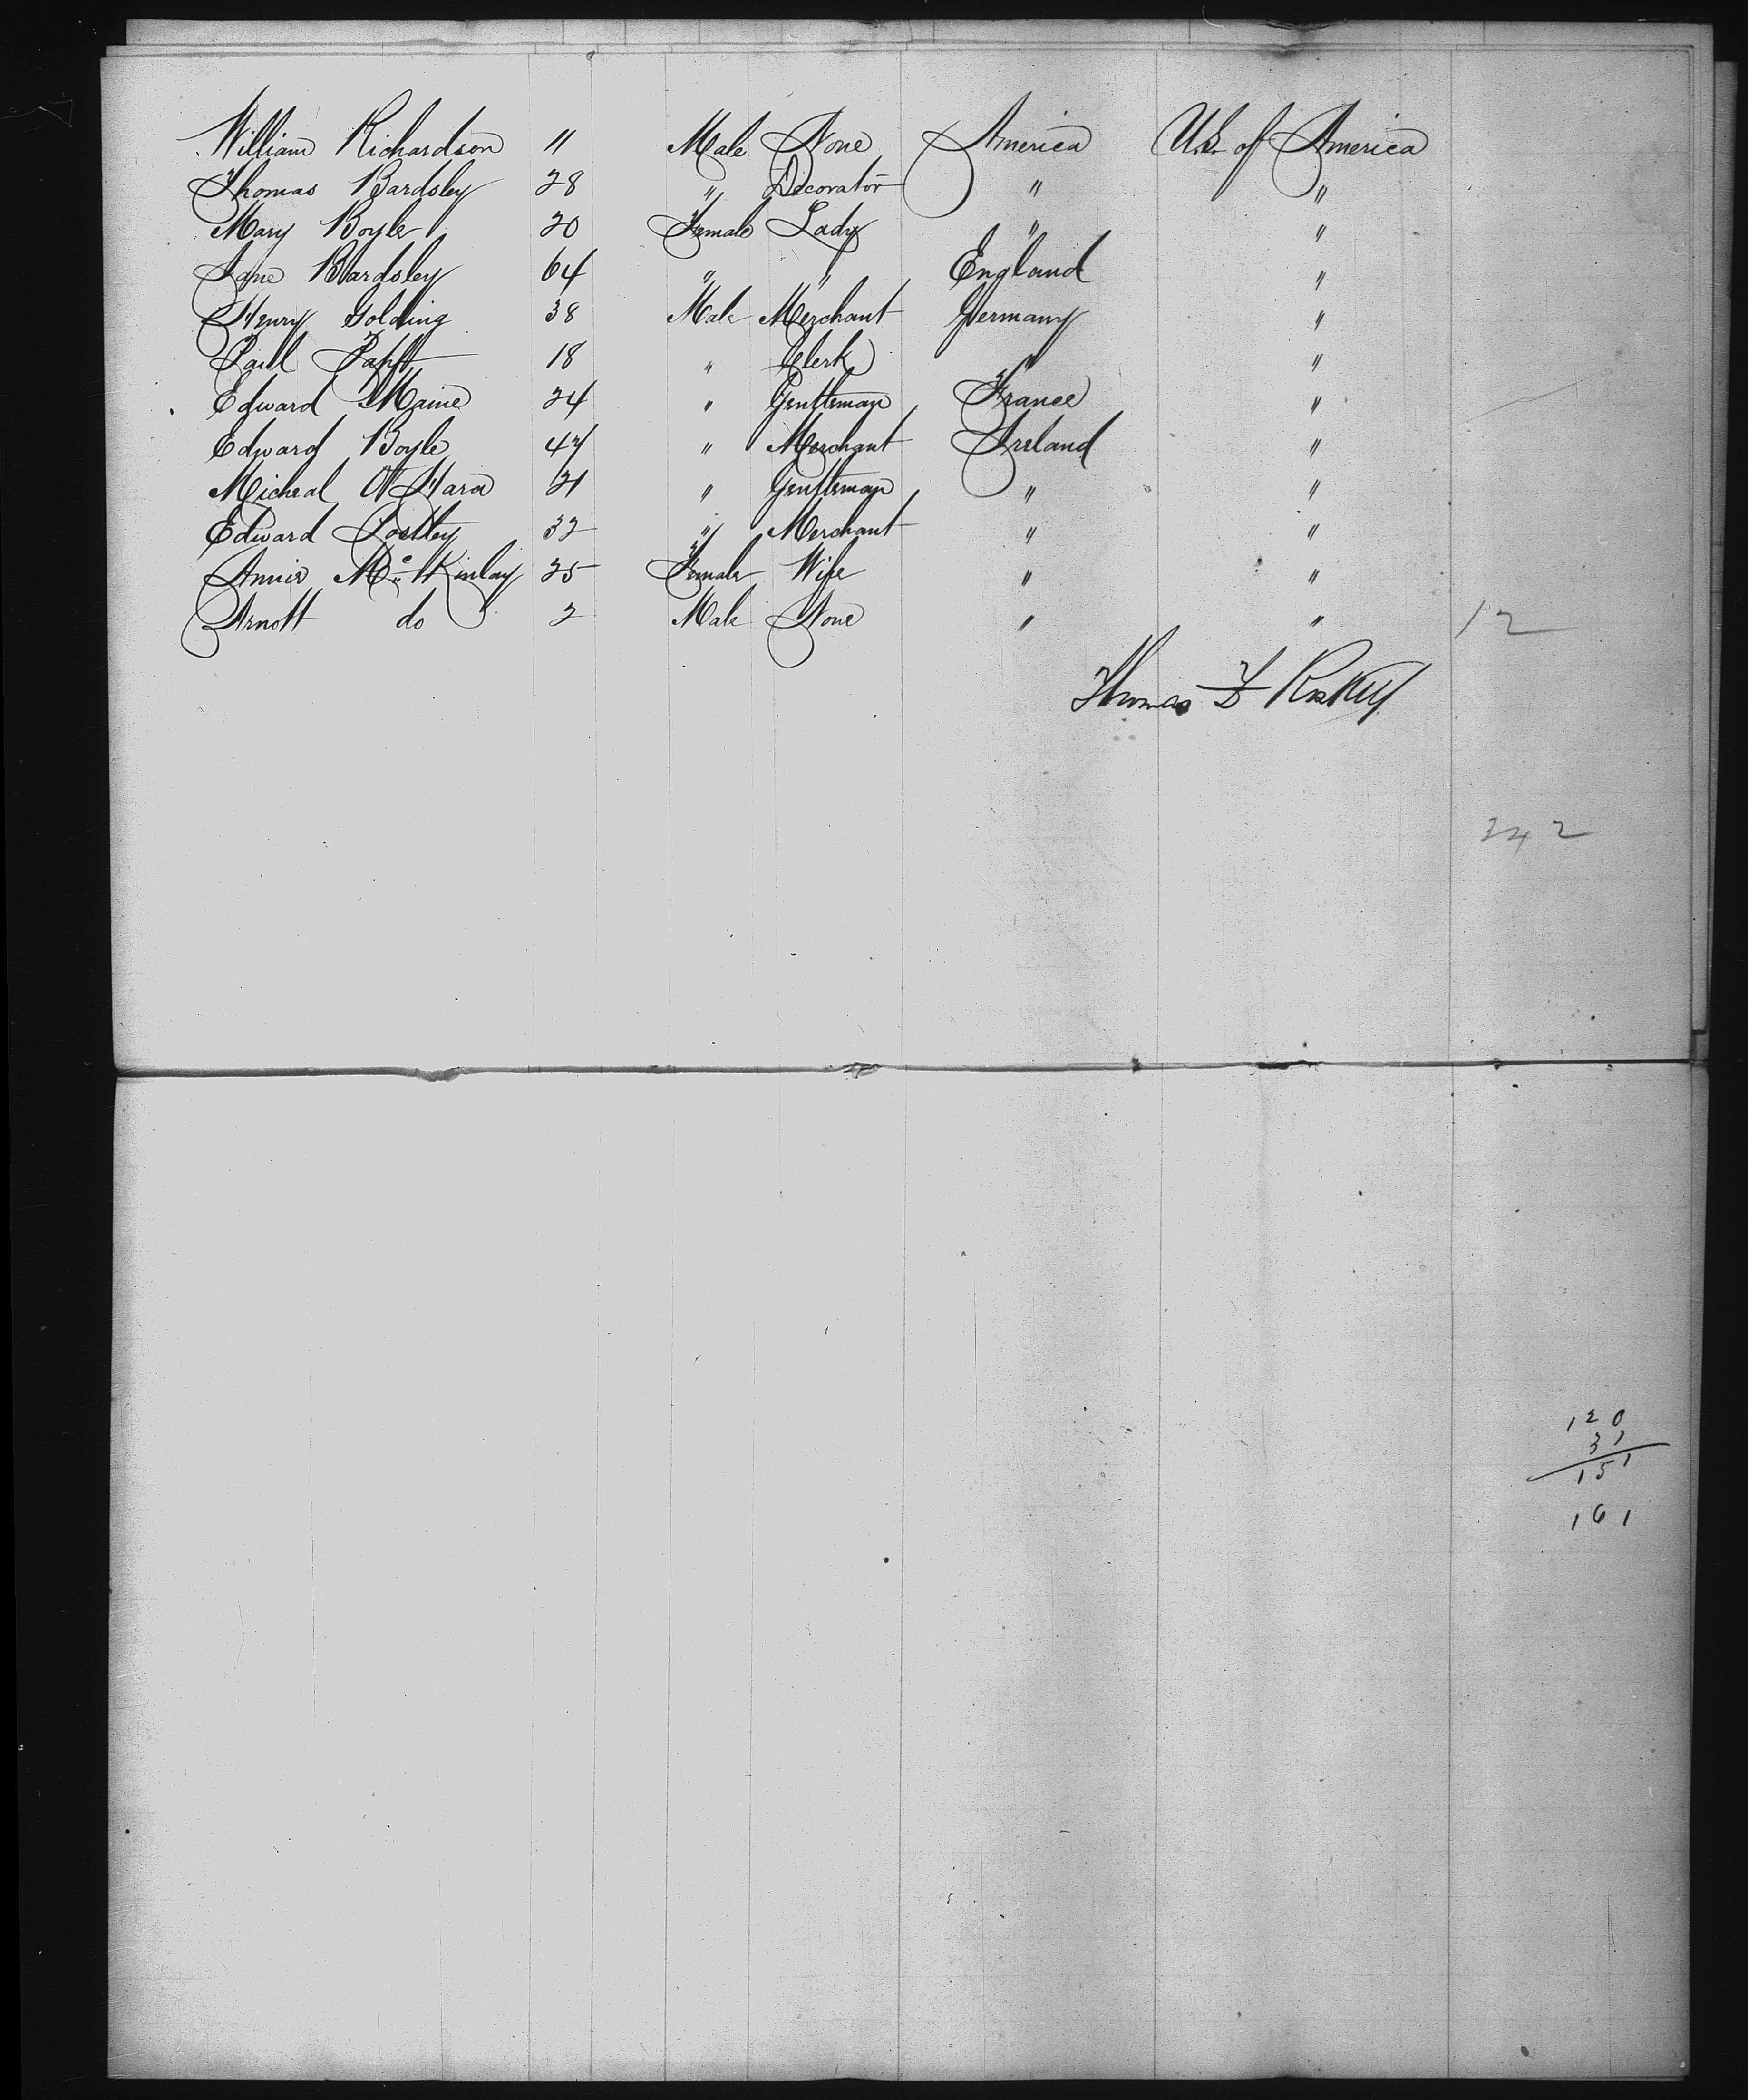 William Richardson 11 Male None America U.S. of America
Thomas Bardsley 28 " Decorator " "
Mary Boyle 20 Female Lady " "
Jane Bardsley 64 " " England "
Henry Golding 38 Male Merchant Germany "
Paul 18 " Clerk " "
Edward Maine 24 " Gentleman France "
Edward Boyle 47 " Merchant Ireland "
Micheal O'Hara 21 " Gentleman " "
Edward 32 " Merchant " "
Annie McKinlay 25 Female Wife " "
Arnott do 2 Male None " " 12
Thomas F
242
120
31
151
161